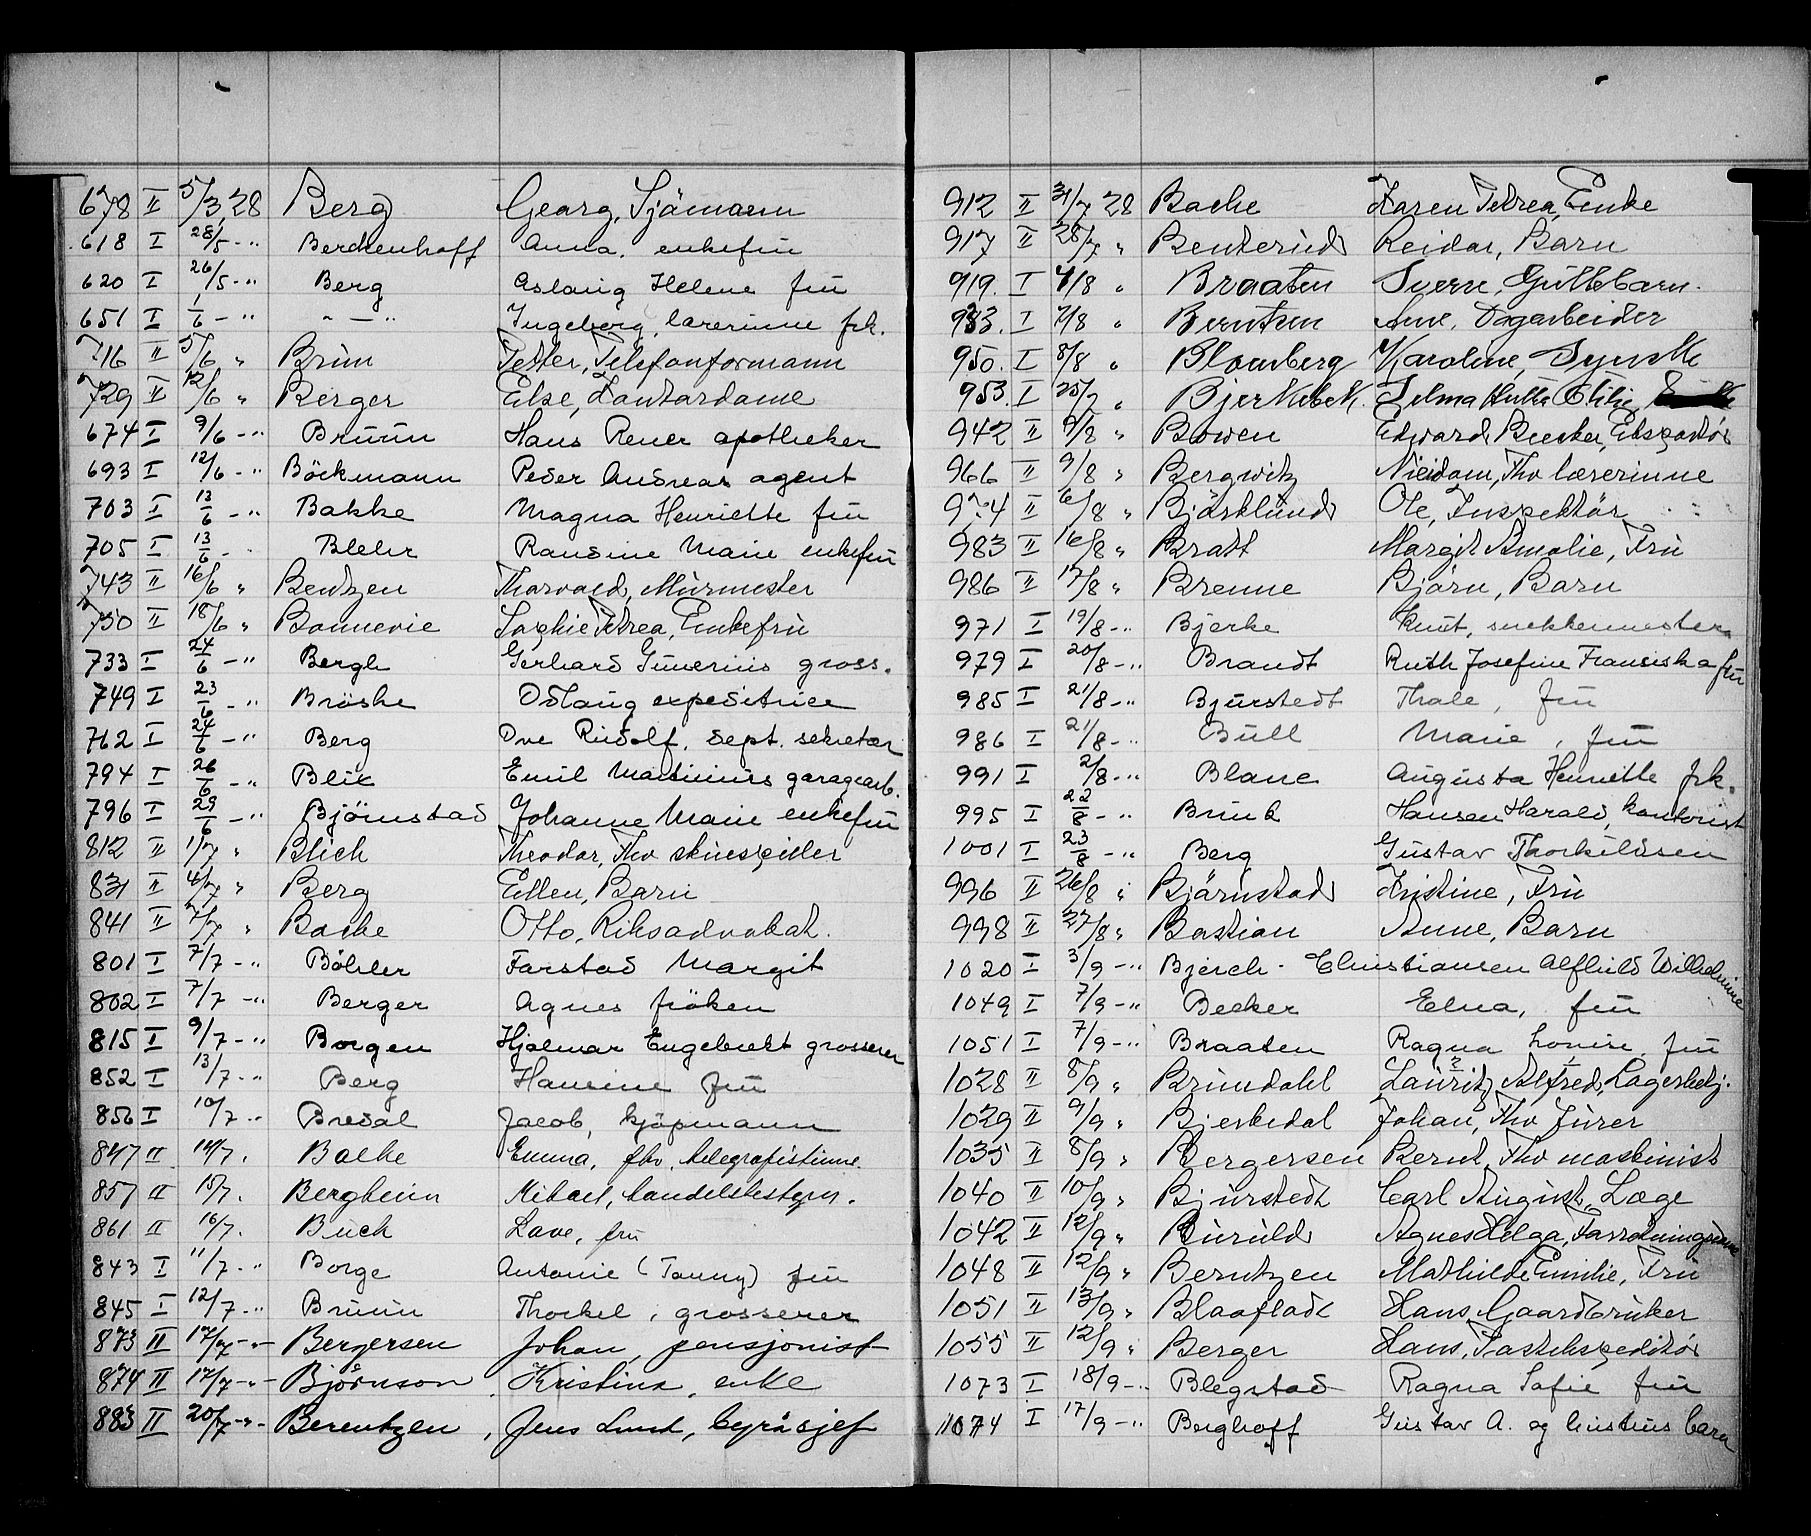 678 II 5/3 28 Berg Georg, Sjömann
618 I 28/5 -" Berckenhoff Anna, enkefru
620 I 26/5 -" Berg Aslaug Helene fru
651 I 1/6 -" " — " Ingeborg, lærerinne frk.
716 II 5/6 " Brun Petter, Telefonformann
729 II 12/6 " Berger Else, Kontordame
674 I 9/6 -" Bruun Hans Rener apotheker
693 I 12/6 -" Böckmann Peder Andreas agent
703 I 13/6 -" Bakke Magna Henriette fru
705 I 13/6 -" Blehr Randine Marie enkefru
743 II 16/6 " Bentzen Thorvald, Murmester
750 II 18/6 " Bonnevie Sophie Petrea, Enkefru
733 I 24/6 -" Bergh Gerhard Gunerius gross.
749 I 23/6 -" Brøske Odlaug expeditrice
762 I 24/6 -" Berg Ove Rudolf, dept. sekretær
794 I 26/6 -" Blix Emil Martinius garagearb.
796 I 29/6 -" Bjørnstad Johanne Marie enkefru
812 II 1/7 " Blich Theodor, Fhv skuespiller
831 II 4/7 " Berg Ellen, Barn
841 II 7/7 " Backe Otto, Riksadvokat.
801 I 7/7 -" Böhler Farstad Margit
802 I 7/7 -" Berger Agnes fröken
815 I 9/7 -" Borgen Hjalmar Engebrekt grosserer
852 I 13/7 -" Berg Hansine fru
856 I 10/7 -" Bredal Jacob, kjøpmann
847 II 14/7. Balke Emma, fhv. telegrafistinne.
857 II 15/7. Bergheim Mikael, handelsbestyrer.
861 II 16/7. Buch Lave, fru
843 I 11/7 -" Borge Antonie (Tonny) fru
845 I 12/7 -" Bruun Thorkel, grosserer
873 II 17/7 -"- Bergersen Johan, pensjonist
874 II 17/7 -"- Bjørnson, Kristina, enke
883 II 20/7 -"- Berentzen, Jens Lund, byråsjef
912 II 31/7 28 Bache Karen Petrea, Enke
917 II 28/7 " Benterud Reidar, Barn
919. I 4/8 " Braaten Sverre, Guttebarn.
933. I 7/8 " Berntsen Arne, Dagarbeider
950. I 8/8 " Blomberg Karoline, Syerske
953. I 25/7 " Bjerkebek. Selma Hulta Otilie
942 II 9/8 " Bowen Edward Becker, Ekspeditör
966 II 9/8 " Bergwitz Nicidom, Fhv lærerinne
974 II 6/8 " Björklund Ole, Inspektör
983 II 16/8 " Bratt Margit Amalie, Fru
986 II 17/8 " Brenne Björn, Barn
971 I 19/8 -" Bjerke Knut, snekkermester
979 I 20/8 -" Brandt Ruth Josefine Fransiska fru
985 I 21/8 -" Bjurstedt Thale, fru
986 I 21/8 -" Bull Marie, fru
991 I 2/8 -" Blanc Augusta Henriette frk.
995 I 22/8 -" Brink Hansen Harald, kontorist
1001 I 23/8 -" Berg Gustav Thorkildsen
996 II 26/8 " Björnstad Kristine, Fru
998 II 27/8 " Bastian Anne, Barn
1020 I 3/9 -" Bjerch - Christiansen Alfhild Wilhelmine
1049 I 7/9 -" Becker Edna, fru
1051 I 7/9 -" Braaten Ragna Louise, fru
1028 II 8/9 " Brundahl Lauritz Alfred, Lagerbetj.
1029 II 9/9 " Bjerkedal Johan, Fhv Furer
1035 II 8/9 " Bergersen Bernt, Fhv maskinist
1040 II 10/9 " Bjurstedt Carl August, Læge
1042 II 12/9 " Buruld Agnes Helga,
1048 II 12/9 " Berntzen Mathilde Emilie, Fru
1051 II 13/9 " Blaafladt Hans, Gaardbruker
1055 II 12/9 " Berger Hans, Postekspeditör
1073 I 18/9 -" Blegstad Ragna Sofie fru
1074 I 17/9 -" Berghoff Gustav A. og hustrus barn